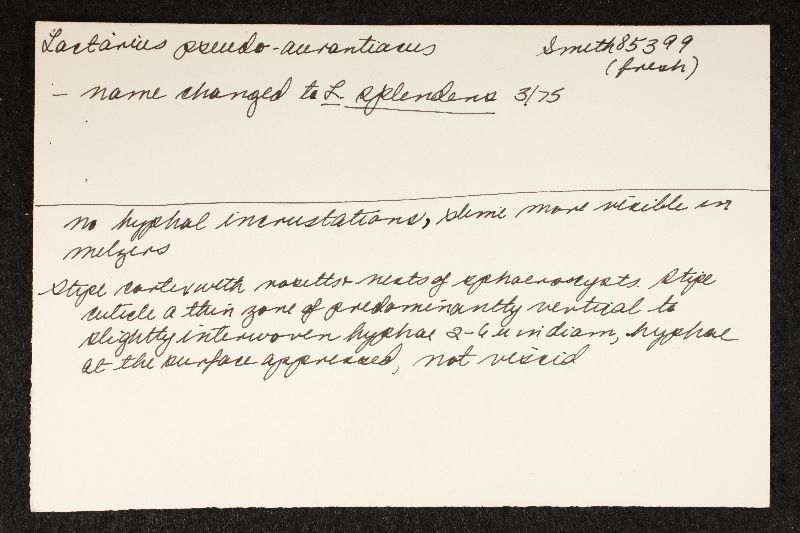 Lactarius pseudo-aurantiacus Smith 85399
(fresh)
- name changed to L. splendens 3/75
no hyphal incrustations, slime more visible in
melzers
Stipe cortex with rosetts & nests of sphaerocysts. Stipe
cuticle a thin zone of predominantly vertical to
slightly interwoven hyphae 2-6 u in diam, hyphae
at the surface appressed, not viscid